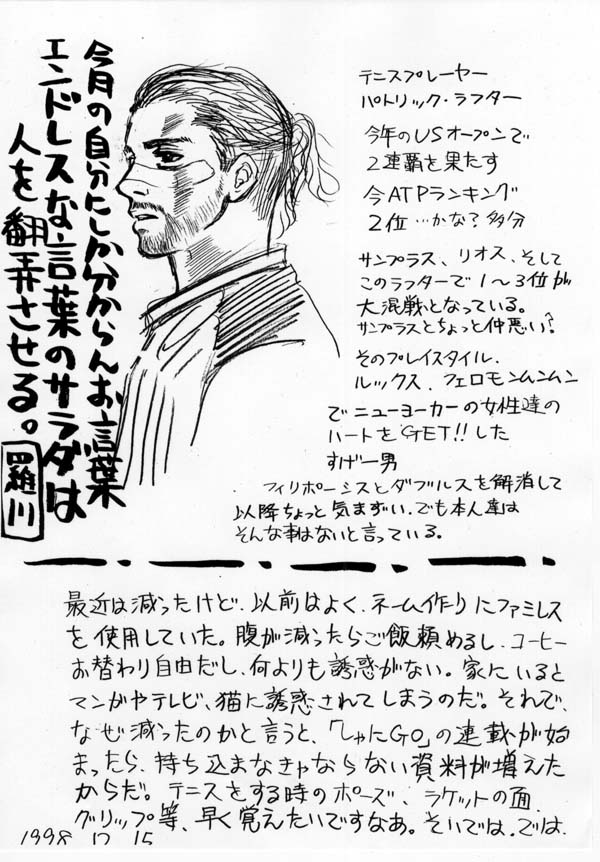 今月の自分にしか分からんお言葉
エンドレスな言葉のサラダは
人を翻弄させる。
羅川
テニスプレーヤー
パトリック・ラフター
今年のUSオープンで
2連覇を果たす
今ATPランキング
2位…かな?多分
サンプラス、リオス、そして
このラフターで1〜3位が
大混戦となっている。
サンプラスとちょっと仲悪い?
そのプレイスタイル、
ルックス、フェロモンムンムン
でニューヨーカーの女性達の
ハートをGET!!した
すげー男
フィリポーシスとダブルスを解消して
以降ちょっと気まずい.でも本人達は
そんな事はないと言っている。
最近は減ったけど、以前はよく、ネーム作りにファミレス
を使用していた。腹が減ったらご飯頼めるし、コーヒー
お替わり自由だし、何よりも誘惑がない。家にいると
マンガやテレビ、猫に誘惑されてしまうのだ。それで、
なぜ減ったのかと言うと、「しゃにGO」の連載が始
まったら、持ち込まなきゃならない資料が増えた
からだ。テニスをする時のポーズ、ラケットの面、
グリップ等、早く覚えたいですなあ。そいでは.では.
1998 15